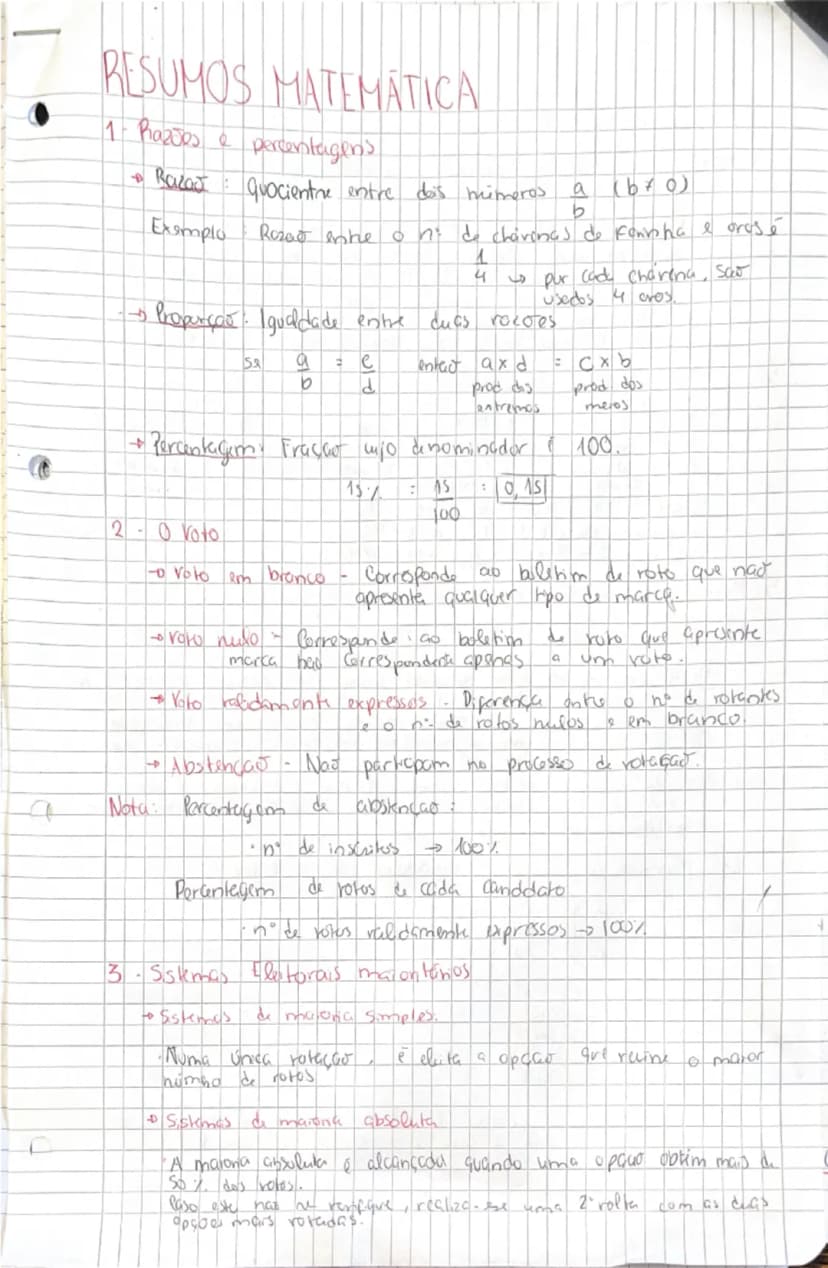 RESUMOS MATEMÁTICA
1 - Razões e percentagens
→ Razão : quociente entre dois números a/b (b ≠ 0)
Exemplo : Razão entre o nº de chávenas de farinha e ovos é
1/4 ↳ por cada chávena, são
usados 4 ovos.
→ Proporção : Igualdade entre duas razões
se a/b = c/d então a x d = c x b
prod dos prod dos
extremos meios
→ Percentagem : Fração cujo denominador é 100.
15% = 15/100 = 0,15
2 - O voto
→ Voto em branco - Corresponde ao boletim de voto que não
apresenta qualquer tipo de marca.
→ Voto nulo - Corresponde ao boletim de voto que apresente
marca não correspondente apenas a um voto.
→ Voto validamente expressos - Diferença entre o nº de votantes
e o nº de votos nulos e em branco.
→ Abstenção - Não participam no processo de votação.
Nota: Percentagem de abstenção :
· nº de inscritos → 100%
Percentagem de votos de cada candidato
· nº de votos validamente expressos → 100%
3 - Sistemas Eleitorais maioritários
→ Sistemas de maioria simples.
· Numa única votação, é eleita a opção que reúne o maior
número de votos
→ Sistemas de maioria absoluta
· A maioria absoluta é alcançada quando uma opção obtim mais de
50% dos votos.
Caso este não se verifique, realiza-se uma 2ª volta com as duas
opções mais votadas.